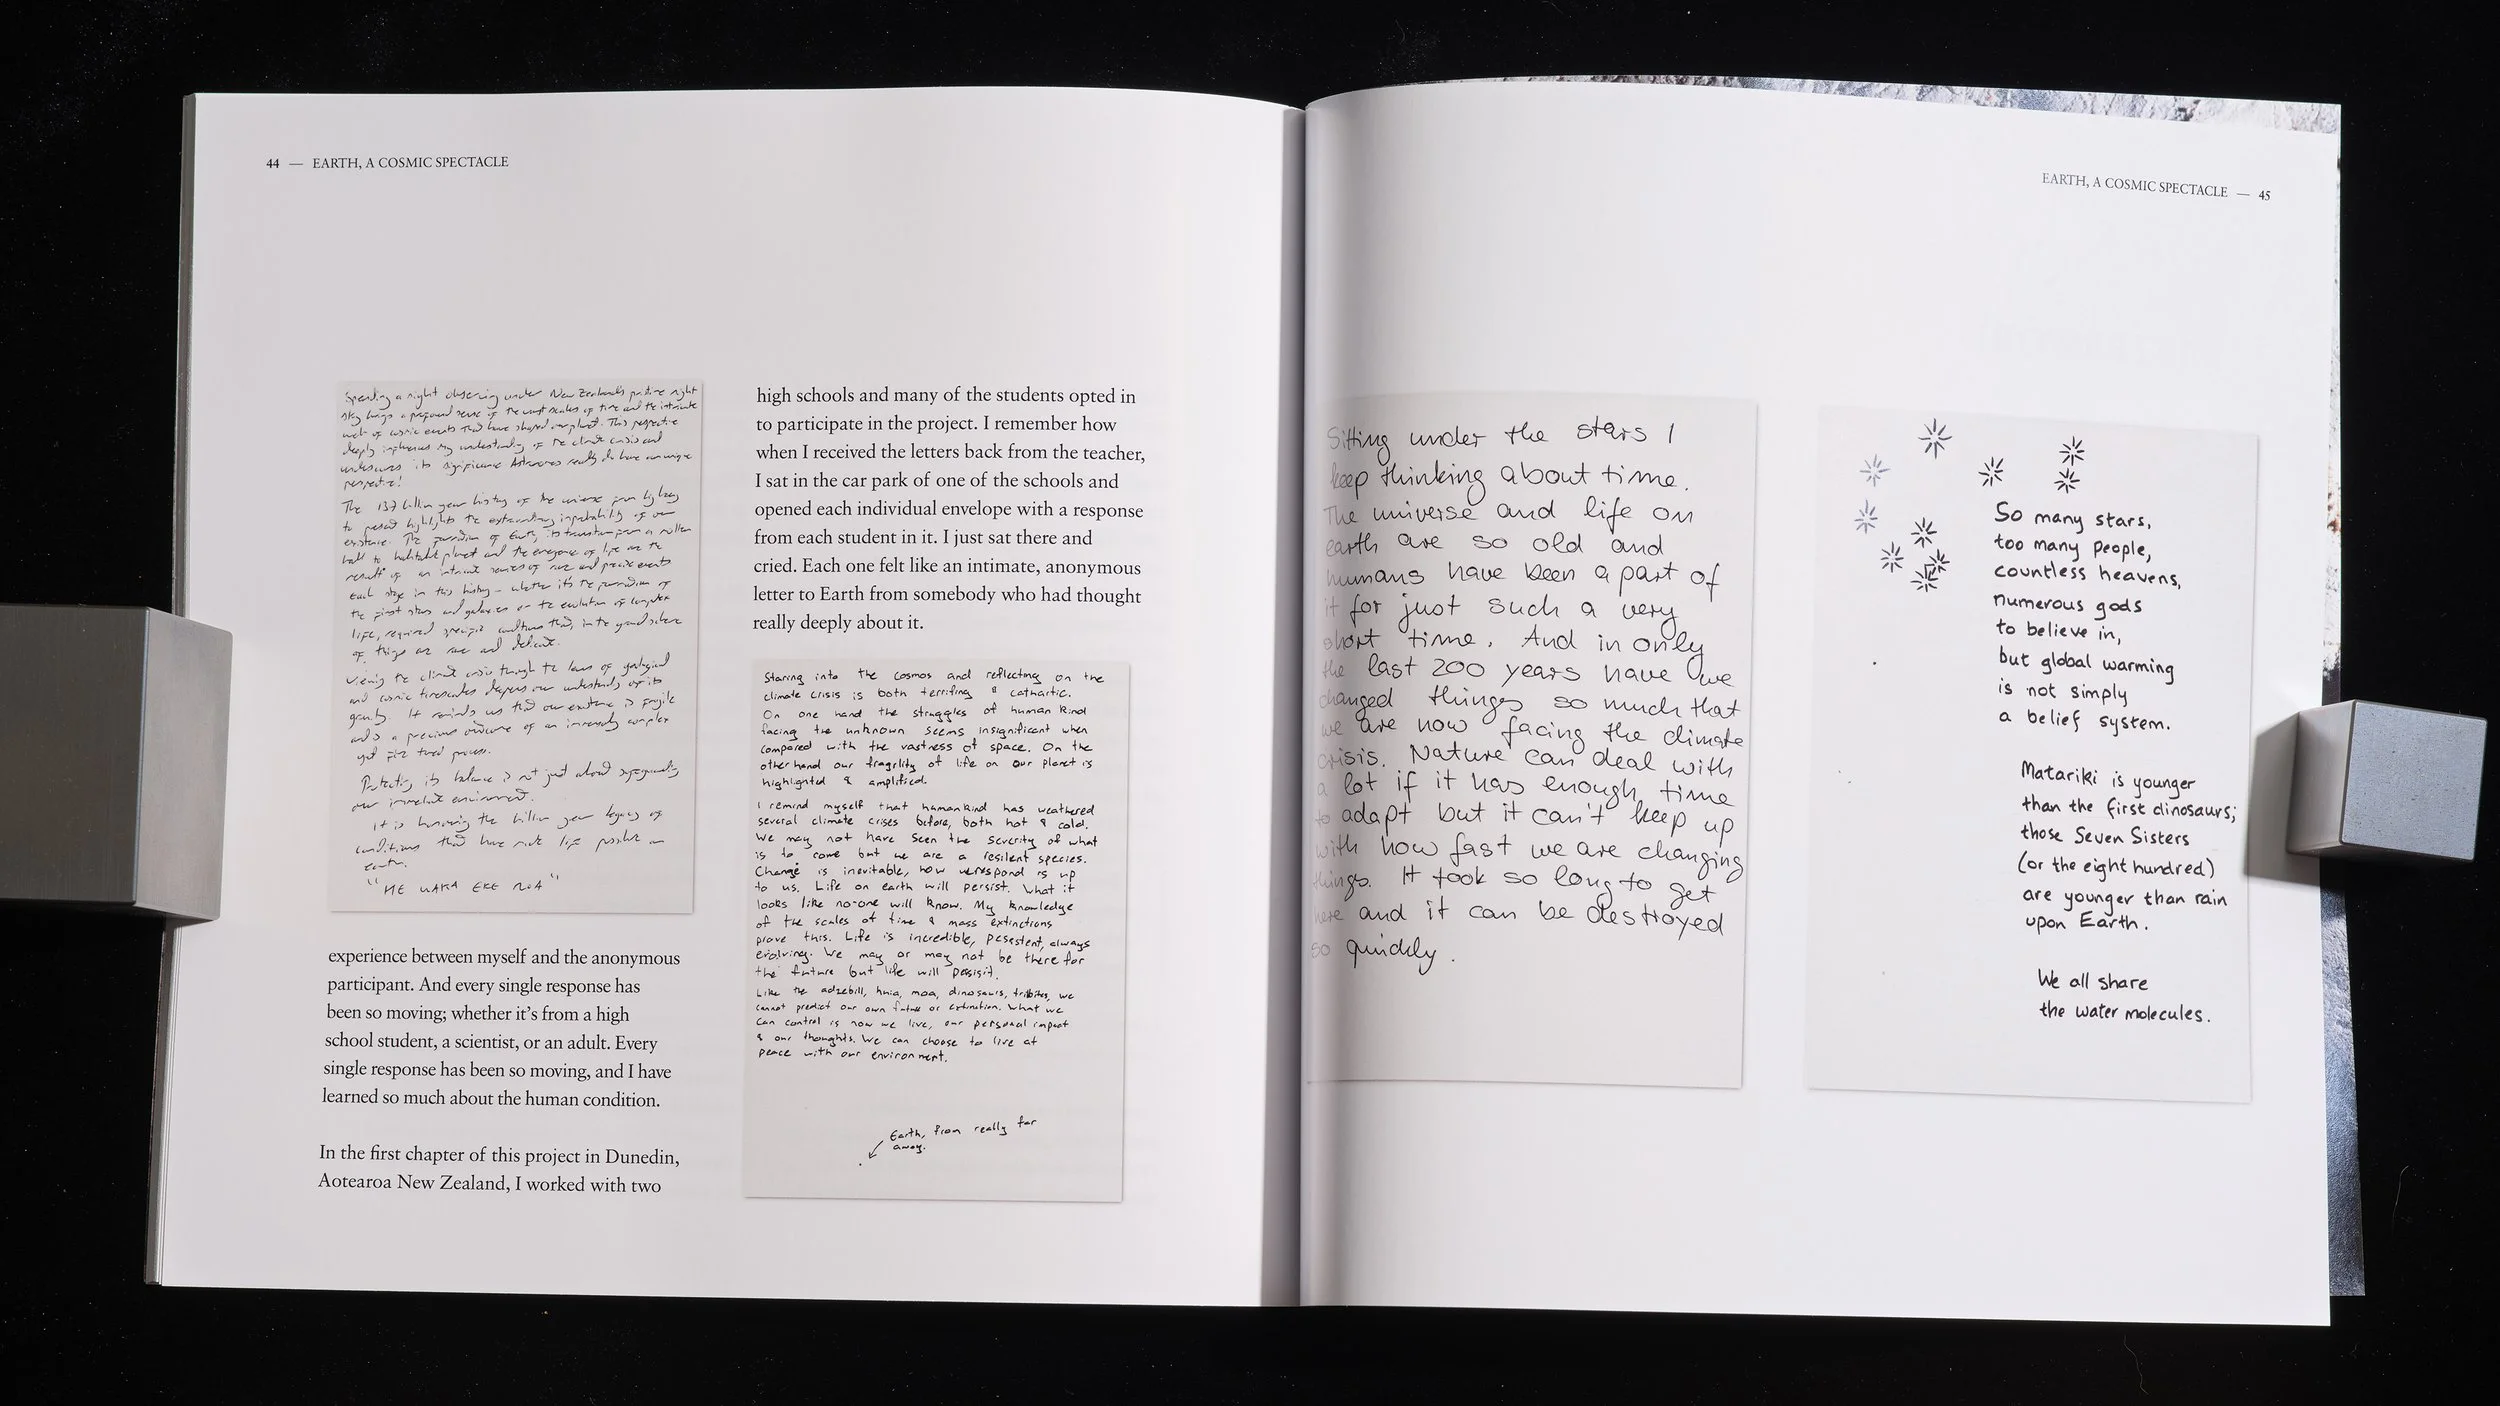 44 — EARTH, A COSMIC SPECTACLE
Spending a night observing under New Zealand's pristine night
sky brings a profound sense of the vast scales of time and the intricate
web of cosmic events that have shaped our planet. This perspective
deeply influences my understanding of the climate crisis and
underscores its significance. Astronomers really do have an unique
perspective!
The 13.7 billion year history of the universe from big bang
to present highlights the extraordinary improbability of our
existence. The formation of Earth, its transition from a molten
ball to habitable planet and the emergence of life are the
result of an intricate series of rare and precise events
Each stage in this history - whether it's the formation of
the first stars and galaxies or the evolution of complex
life, required specific conditions that, in the grand scheme
of things are rare and delicate.
Viewing the climate crisis through the lens of geological
and cosmic timescales deepens our understanding of its
gravity. It reminds us that our existence is fragile
and a precious outcome of an immensely complex
yet fine tuned process.
Protecting its balance is not just about safeguarding
our immediate environment.
It is honouring the billion year legacy of
conditions that have made life possible on
earth.
"HE WAKA EKE NOA"
experience between myself and the anonymous
participant. And every single response has
been so moving; whether it's from a high
school student, a scientist, or an adult. Every
single response has been so moving, and I have
learned so much about the human condition.
In the first chapter of this project in Dunedin,
Aotearoa New Zealand, I worked with two
high schools and many of the students opted in
to participate in the project. I remember how
when I received the letters back from the teacher,
I sat in the car park of one of the schools and
opened each individual envelope with a response
from each student in it. I just sat there and
cried. Each one felt like an intimate, anonymous
letter to Earth from somebody who had thought
really deeply about it.
Staring into the cosmos and reflecting on the
climate crisis is both terrifing & cathartic.
On one hand the struggles of human kind
facing the unknown seems insignificant when
compared with the vastness of space. On the
other hand our fragility of life on our planet is
highlighted & amplified.
I remind myself that humankind has weathered
several climate crises before, both hot & cold.
We may not have seen the severity of what
is to come but we are a resilent species.
Change is inevitable, how we respond is up
to us. Life on earth will persist. What it
looks like no-one will know. My knowledge
of the scales of time & mass extinctions
prove this. Life is incredible, pesistent, always
evolving. We may or may not be there for
the future but life will persist.
Like the adzebill, huia, moa, dinosaurs, trilobites, we
cannot predict our own future or extinction. What we
can control is how we live, our personal impact
& our thoughts. We can choose to live at
peace with our environment.
Earth, from really far
away.
EARTH, A COSMIC SPECTACLE — 45
Sitting under the stars I
keep thinking about time.
The universe and life on
earth are so old and
humans have been a part of
it for just such a very
short time. And in only
the last 200 years have we
changed things so much that
we are now facing the climate
crisis. Nature can deal with
a lot if it has enough time
to adapt but it can't keep up
with how fast we are changing
things. It took so long to get
here and it can be destroyed
so quickly.
So many stars,
too many people,
countless heavens,
numerous gods
to believe in,
but global warming
is not simply
a belief system.
Matariki is younger
than the first dinosaurs;
those Seven Sisters
(or the eight hundred)
are younger than rain
upon Earth.
We all share
the water molecules.